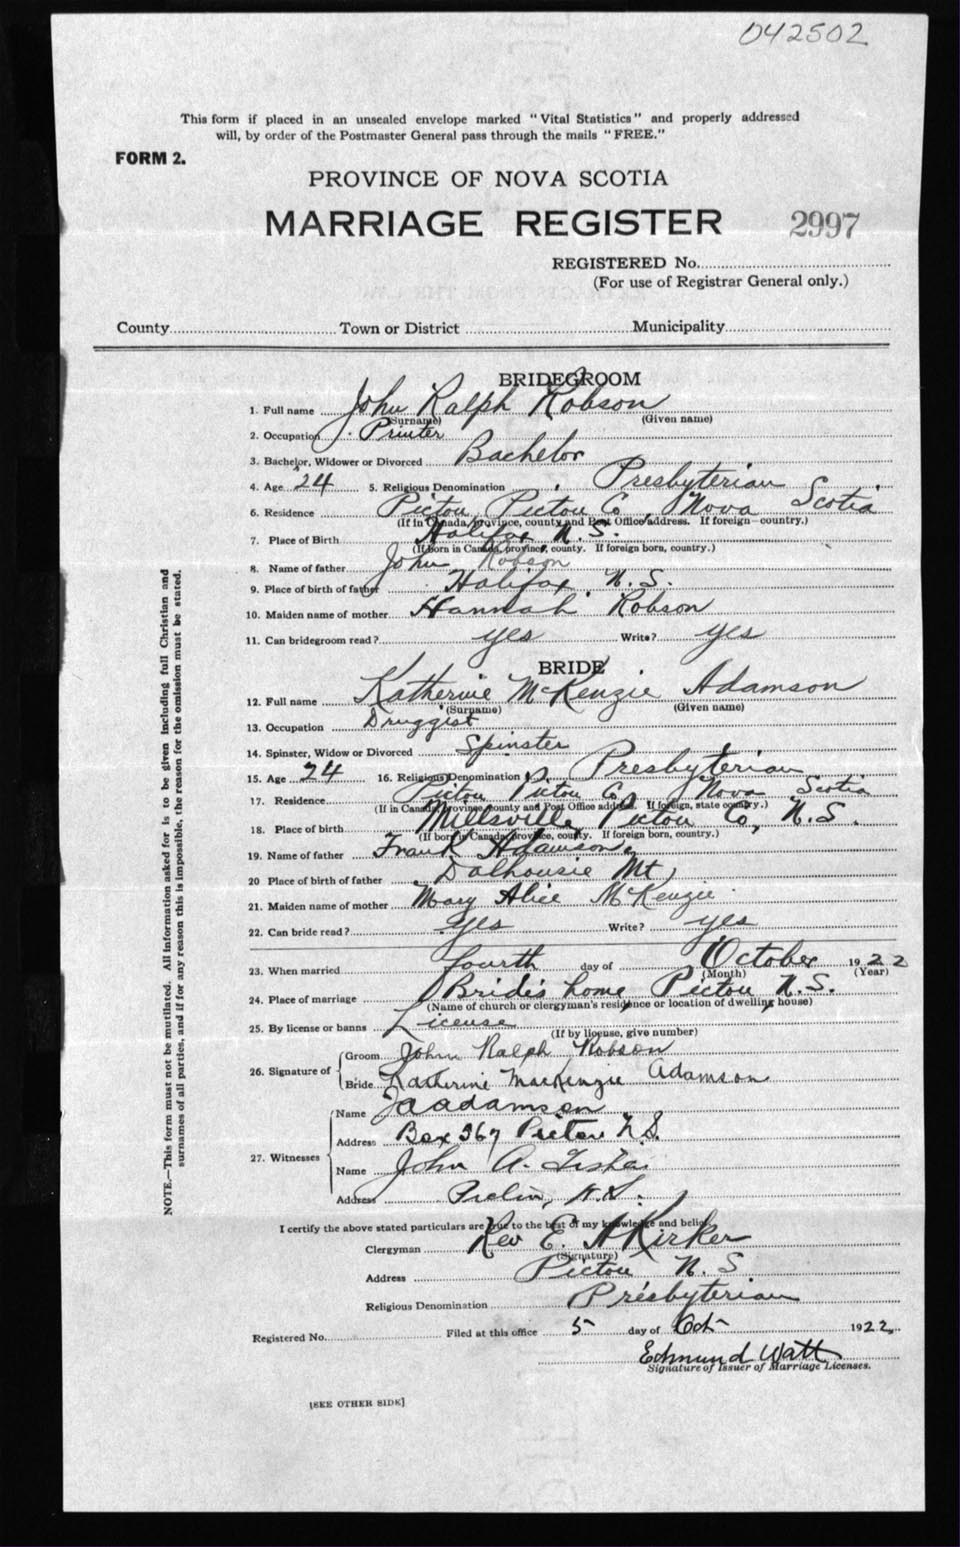 042502
This form if placed in an unsealed envelope marked "Vital Statistics" and properly addressed
will, by order of the Postmaster General pass through the mails "FREE."
FORM 2.
PROVINCE OF NOVA SCOTIA
MARRIAGE REGISTER 2997
REGISTERED No.
(For use of Registrar General only.)
County Town or District Municipality
BRIDEGROOM
1. Full name John Ralph Robson
(Surname) (Given name)
2. Occupation Printer
3. Bachelor, Widower or Divorced Bachelor
4. Age 24 5. Religious Denomination Presbyterian
6. Residence Pictou Pictou Co Nova Scotia
(If in Canada, province, county and Post Office address. If foreign—country.)
7. Place of Birth Halifax N.S.
(If born in Canada, province, county. If foreign born, country.)
8. Name of father John Robson
9. Place of birth of father Halifax, N.S.
10. Maiden name of mother Hannah Robson
11. Can bridegroom read? yes Write? yes
BRIDE
12. Full name Katherine McKenzie Adamson
(Surname) (Given name)
13. Occupation Druggist
14. Spinster, Widow or Divorced Spinster
15. Age 24 16. Religious Denomination Presbyterian
17. Residence Pictou Pictou Co Nova Scotia
(If in Canada, province county and Post Office address. If foreign, state country.)
18. Place of birth Millsville, Pictou Co, N.S.
(If born in Canada, province, county. If foreign born, country.)
19. Name of father Frank Adamson
20 Place of birth of father Dalhousie Mt
21. Maiden name of mother Mary Alice McKenzie
22. Can bride read? yes Write? yes
23. When married fourth day of October 1922
(Month) (Year)
24. Place of marriage Bride's home, Pictou N.S.
(Name of church or clergyman's residence or location of dwelling house)
25. By license or banns License
(If by license, give number)
26. Signature of Groom John Ralph Robson
Bride Katherine MacKenzie Adamson
27. Witnesses
Name adamson
Address Box 367 Pictou N.S.
Name John A.
Address N.S.
I certify the above stated particulars are true to the best of my knowledge and belief
Clergyman Rev E. A Kirker
(Signature)
Address Pictou N.S
Religious Denomination Presbyterian
Registered No. Filed at this office 5 day of Oct 1922
Edmund Watt
Signature of Issuer of Marriage Licenses.
[SEE OTHER SIDE]
NOTE.—This form must not be mutilated. All information asked for is to be given including full Christian and
surnames of all parties, and if for any reason this is impossible, the reason for the omission must be stated.